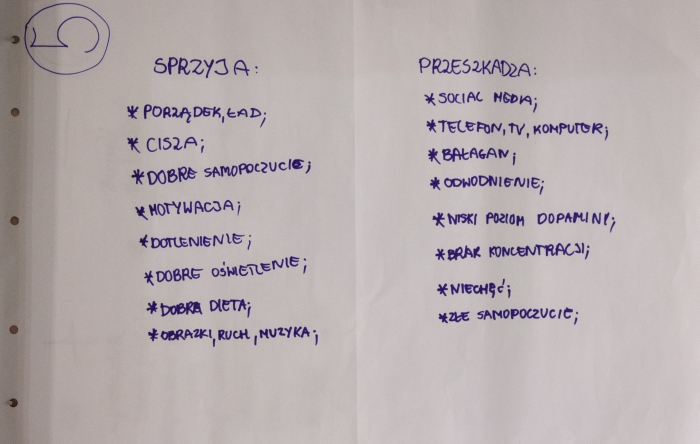 5
SPRZYJA:
* PORZĄDEK, ŁAD;
* CISZA;
* DOBRE SAMOPOCZUCIE;
* MOTYWACJA;
* DOTLENIENIE;
* DOBRE OŚWIETLENIE;
* DOBRA DIETA;
* OBRAZKI, RUCH, MUZYKA;
PRZESZKADZA:
* SOCIAL MEDIA;
* TELEFON, TV, KOMPUTER;
* BAŁAGAN;
* ODWODNIENIE;
* NISKI POZIOM DOPAMINY;
* BRAK KONCENTRACJI;
* NIECHĘĆ;
* ZŁE SAMOPOCZUCIE;